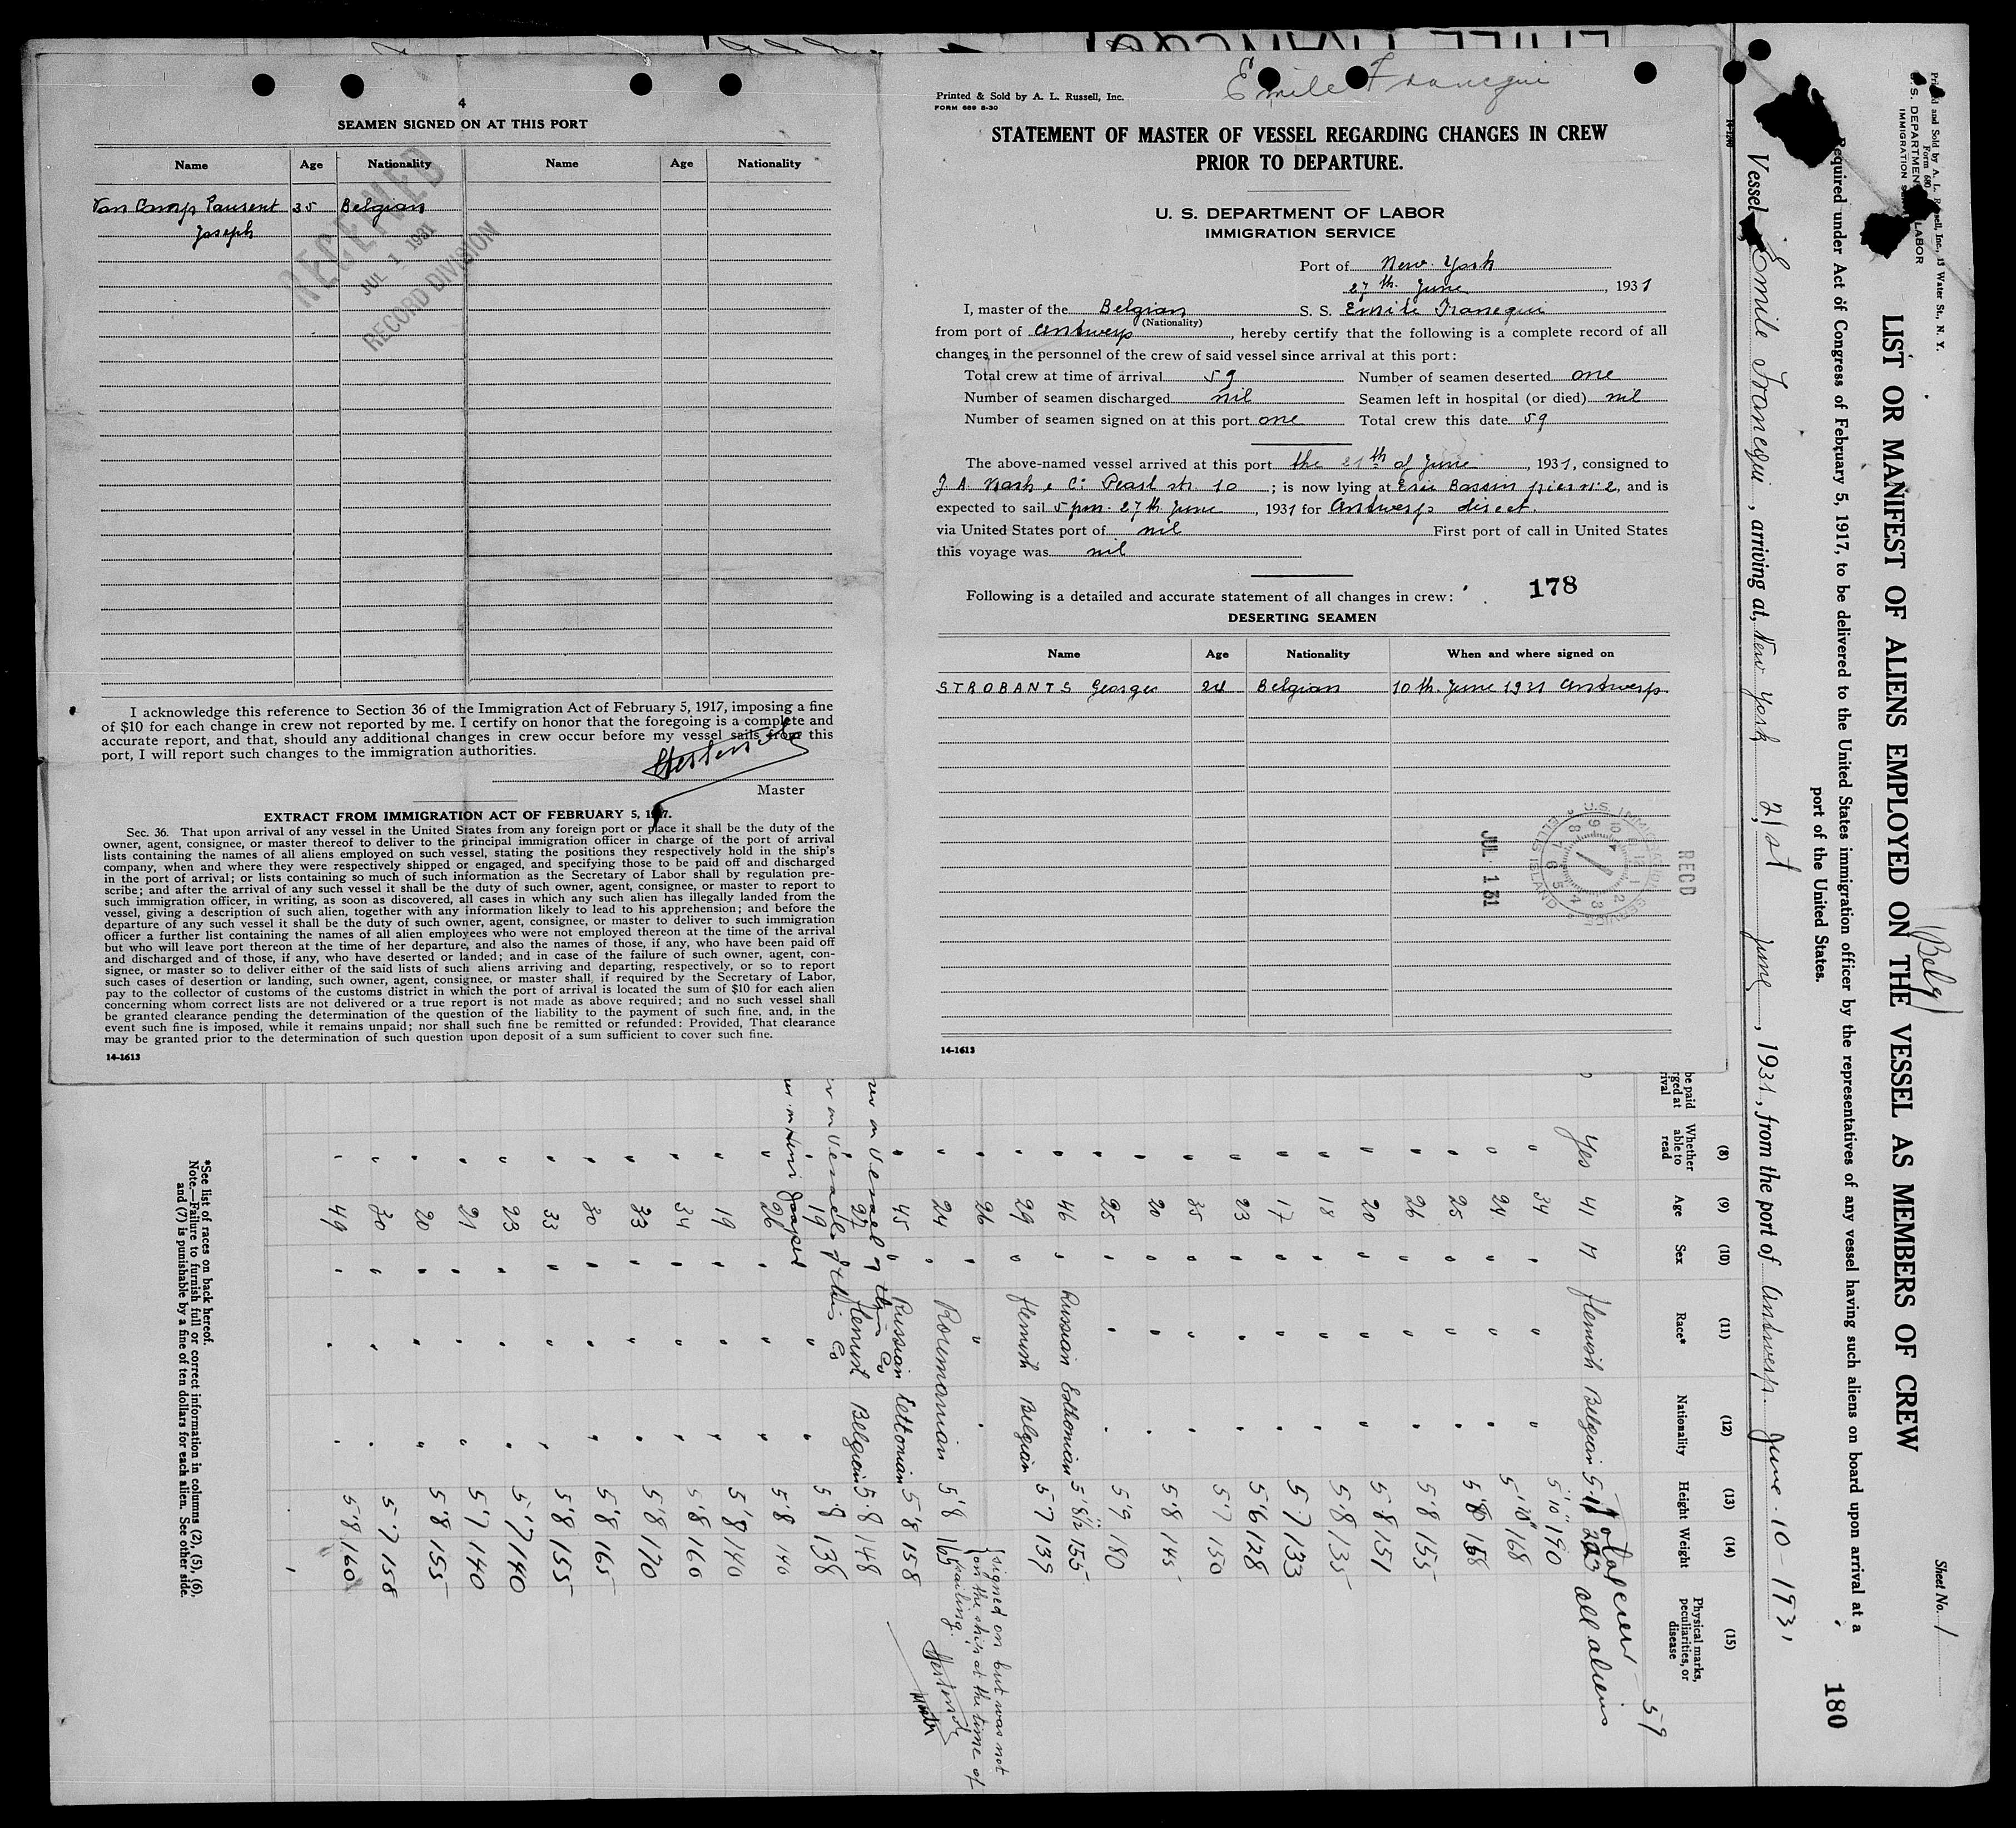 4
SEAMEN SIGNED ON AT THIS PORT
Name Age Nationality Name Age Nationality
Van Camp Laurent 35 Belgian
Joseph
RECEIVED
JUL 1 1931
RECORD DIVISION
I acknowledge this reference to Section 36 of the Immigration Act of February 5, 1917, imposing a fine
of $10 for each change in crew not reported by me. I certify on honor that the foregoing is a complete and
accurate report, and that, should any additional changes in crew occur before my vessel sails from this
port, I will report such changes to the immigration authorities.
Master
EXTRACT FROM IMMIGRATION ACT OF FEBRUARY 5, 1917.
Sec. 36. That upon arrival of any vessel in the United States from any foreign port or place it shall be the duty of the
owner, agent, consignee, or master thereof to deliver to the principal immigration officer in charge of the port of arrival
lists containing the names of all aliens employed on such vessel, stating the positions they respectively hold in the ship's
company, when and where they were respectively shipped or engaged, and specifying those to be paid off and discharged
in the port of arrival; or lists containing so much of such information as the Secretary of Labor shall by regulation pre-
scribe; and after the arrival of any such vessel it shall be the duty of such owner, agent, consignee, or master to report to
such immigration officer, in writing, as soon as discovered, all cases in which any such alien has illegally landed from the
vessel, giving a description of such alien, together with any information likely to lead to his apprehension; and before the
departure of any such vessel it shall be the duty of such owner, agent, consignee, or master to deliver to such immigration
officer a further list containing the names of all alien employees who were not employed thereon at the time of the arrival
but who will leave port thereon at the time of her departure, and also the names of those, if any, who have been paid off
and discharged and of those, if any, who have deserted or landed; and in case of the failure of such owner, agent, con-
signee, or master so to deliver either of the said lists of such aliens arriving and departing, respectively, or so to report
such cases of desertion or landing, such owner, agent, consignee, or master shall, if required by the Secretary of Labor,
pay to the collector of customs of the customs district in which the port of arrival is located the sum of $10 for each alien
concerning whom correct lists are not delivered or a true report is not made as above required; and no such vessel shall
be granted clearance pending the determination of the question of the liability to the payment of such fine, and, in the
event such fine is imposed, while it remains unpaid; nor shall such fine be remitted or refunded: Provided, That clearance
may be granted prior to the determination of such question upon deposit of a sum sufficient to cover such fine.
14-1613
Emile Francqui
Printed & Sold by A. L. Russell, Inc.
FORM 689 8-30
STATEMENT OF MASTER OF VESSEL REGARDING CHANGES IN CREW
PRIOR TO DEPARTURE.
U. S. DEPARTMENT OF LABOR
IMMIGRATION SERVICE
Port of New York
27th June, 1931
I, master of the Belgian S. S. Emile Francqui
(Nationality)
from port of Antwerp, hereby certify that the following is a complete record of all
changes in the personnel of the crew of said vessel since arrival at this port:
Total crew at time of arrival 59 Number of seamen deserted one
Number of seamen discharged nil Seamen left in hospital (or died) nil
Number of seamen signed on at this port one Total crew this date 59
The above-named vessel arrived at this port the 21th of June, 1931, consigned to
Pearl str. 10; is now lying at Erie Bassin pier n: 2, and is
expected to sail 5 pm. 27th June, 1931 for Antwerp direct.
via United States port of nil First port of call in United States
this voyage was nil
178
Following is a detailed and accurate statement of all changes in crew:
DESERTING SEAMEN
Name Age Nationality When and where signed on
STROBANTS Georges 24 Belgian 10th. June 1931 Antwerp
U.S. IMMIGRATION SERVICE ELLIS ISLAND
RECD
JUL 1 31
14-1613
Printed and Sold by A. L. Russell, Inc., 13 Water St., N. Y.
Form 680
U. S. DEPARTMENT OF LABOR
IMMIGRATION
Sheet No. 1
(Belg)
LIST OR MANIFEST OF ALIENS EMPLOYED ON THE VESSEL AS MEMBERS OF CREW
180
Required under Act of Congress of February 5, 1917, to be delivered to the United States immigration officer by the representatives of any vessel having such aliens on board upon arrival at a
port of the United States.
Vessel Emile Francqui, arriving at, New York 21st June, 1931, from the port of Antwerp June - 10 - 1931
(8) (9) (10) (11) (12) (13) (14) (15)
Whether able to read Age Sex Race* Nationality Height Weight Physical marks, peculiarities, or disease
Total crew 59
all aliens
Yes 41 M flemish Belgian 203
34 " " " 5'10" 190
24 " " " 5'10" 168
25 " " " 5'8 158
26 " " " 5'8 155
20 " " " 5'8 151
18 " " " 5'8 135
17 " " " 5'7 133
23 " " " 5'6 128
35 " " " 5'7 150
20 " " " 5'8 145
25 " " " 5'9 180
46 " Russian Esthonian 5'8½ 155
29 " flemish Belgian 5'7 139
26 " " "
{signed on but was not
on the ship at the time of
sailing.
24 " Roumanian 5'8 165
Master
45 " Russian Lettonian 5'8 158
27 " flemish Belgian 5'8 148
19 " " " 5'8 138
26 " " " 5'8 140
19 " " " 5'8 140
34 " " " 5'8 160
33 " " " 5'8 170
30 " " " 5'8 165
33 " " " 5'8 155
23 " " " 5'7 140
21 " " " 5'7 140
20 " " " 5'8 155
30 " " " 5'7 158
49 " " " 5'8 160
*See list of races on back hereof.
Note.—Failure to furnish full or correct information in columns (2), (5), (6),
and (7) is punishable by a fine of ten dollars for each alien. See other side.